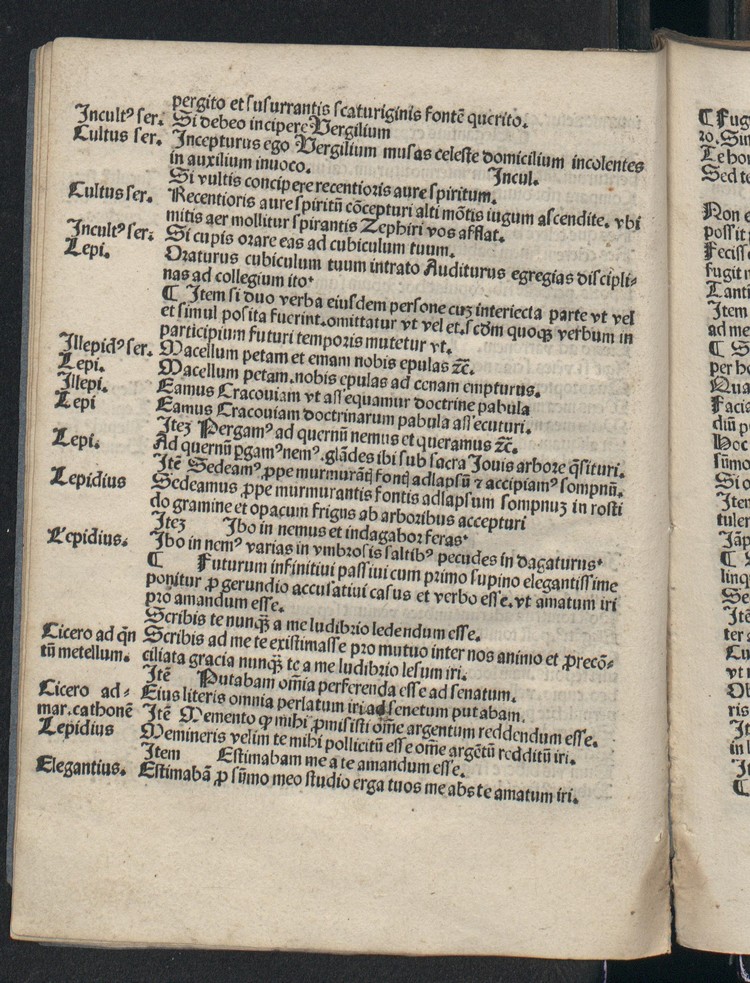 pergito et susurrantis scaturiginis fontē querito.
Incultꝰ ser. Si debeo incipere Vergilium
Cultus ser. Incepturus ego Vergilium musas celeste domicilium incolentes
in auxilium inuoco. Incul.
Si vultis concipere recentioris aure spiritum.
Cultus ser. Recentioris aure spiritū cōcepturi alti mōtis iugum ascendite. vbi
mitis aer mollitur spirantis Zephiri vos afflat.
Incultꝰ ser. Si cupis orare eas ad cubiculum tuum.
Lepi. Oraturus cubiculum tuum intrato Auditurus egregias discipli-
nas ad collegium ito.
¶ Item si duo verba eiusdem persone cuꝫ interiecta parte vt vel
et simul posita fuerint. omittatur vt vel et. scdm quoqꝫ verbum in
participium futuri temporis mutetur vt.
Illepidꝰ ser. Macellum petam et emam nobis epulas ⁊c̄.
Lepi. Macellum petam. nobis epulas ad cenam empturus.
Illepi. Eamus Cracouiam vt assequamur doctrine pabula
Lepi Eamus Cracouiam doctrinarum pabula assecuturi.
Iteꝫ Pergamꝰ ad quernū nemus et queramus ⁊c̄.
Lepi. Ad quernū ꝑgamꝰ nemꝰ. glādes ibi sub sacra Iouis arbore q̄situri.
Itē Sedeamꝰ ꝓpe murmurātꝭ fontꝭ adlapsū ⁊ accipiamꝰ sompnū.
Lepidius Sedeamus ꝓpe murmurantis fontis adlapsum sompnuꝫ in rosti
do gramine et opacum frigus ab arboribus accepturi
Iteꝫ Ibo in nemus et indagabor feras.
Lepidius. Ibo in nemꝰ varias in vmbrosis saltibꝰ pecudes indagaturus.
¶ Futurum infinitiui passiui cum primo supino elegantissime
ponitur ꝓ gerundio accusatiui casus et verbo esse. vt amatum iri
pro amandum esse.
Scribis te nunqꝫ a me ludibrio ledendum esse.
Cicero ad qn̄ Scribis ad me te existimasse pro mutuo inter nos animo et ꝓrecō-
tū metellum. ciliata gracia nunqꝫ te a me ludibrio lesum iri.
Itē Putabam om̄ia perferenda esse ad senatum.
Cicero ad- Eius literis omnia perlatum iri ad senetum putabam.
mar. cathonē Itē Memento ꝙ mihi ꝓmisisti om̄e argentum reddendum esse.
Lepidius Memineris velim te mihi pollicitū esse om̄e argētū redditū iri.
Item Estimabam me a te amandum esse.
Elegantius. Estimabā ꝓ sūmo meo studio erga tuos me abs te amatum iri.